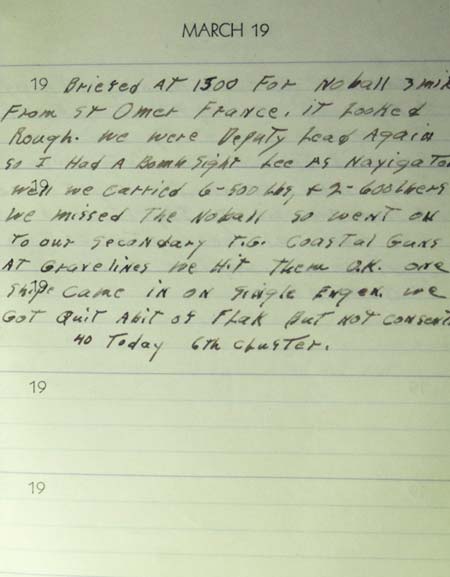 MARCH 19
19 Briefed At 1300 For Noball 3 mil
From St Omer France. it Looked
Rough. we were Deputy Lead Again
so I Had A Bomb Sight Lee As Navigator
well we carried 6-500 Lbs, & 2-600Lbers
19
we missed The Noball so went on
To our secondary T.G. coastal Guns
At Gravelines we Hit Them O.K. one
ship came in on single Engen. we
19
Got Quit Abit of Flak But not consent
40 Today 6th cluster.
19
19